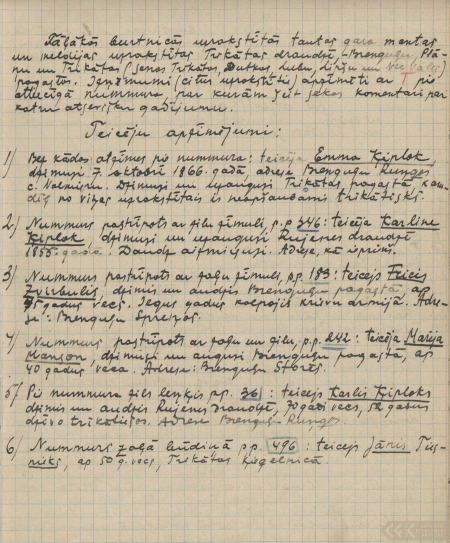 Tālākās burtnīcās uzrakstītās tautas gara mantas
un melodijas uzrakstītas Trikātas draudzē, Brenguļu, Plā-
ņu un Trikātas (Jaunas Trikātas, Dutku, Lubu, Lipšu un
pagastos. Jaunumi (citur uzrakstīti) apzīmēti ar T pie
attiecīgā nummura, par kurām šeit sekos komentāri par
katru atsevišķu gadījumu.
Teicēju apzīmējumi:
1) Bez kādas atzīmes pie nummura: teicēja Emma Ķiplok,
dzimusi 7. oktobrī 1866. gadā, adrese Brenguļu Runģos
c. Valmieru. Dzimusi un uzaugusi Trikātas pagastā, kam-
dēļ no viņas uzrakstītais ir neapšaubāmi trikātisks.
2) Nummurs pastrīpots ar zilu zīmuli, p.p. 346: teicēja Karline
Ķiplok, dzimusi un uzaugusi Rujenes draudzē
1855. gadā. Daudz aizmirsusi. Adrese, kā iepriekš.
3) Nummurs pastrīpots ar zaļu zīmuli, p.p. 183: teicējs Fricis
Zvirbulis, dzimis un audzis Brenguļu pagastā, ap
gadus vecs. Jegus gadus kalpojis krievu armijā. Adre-
se: Brenguļu Spreižos.
4) Nummurs pastrīpots ar zaļu un zilu, p.p. 242: teicēja Marija
Manson, dzimusi un augusi Brenguļu pagastā, ap
40 gadus veca. Adrese: Brenguļu
5) Pie nummura zils leņķis pp. 36: teicējs Karlis Ķiploks
dzimis un audzis Rujenes draudzē, 70 gadi vecs, 52 gadus
dzīvo trikātiešos. Adrese Brenguļu Runģos.
6) Nummurs zaļā būdiņā pp. 496: teicējs Jānis
ap 50 g. vecs, Trikātas Ķieģelnīcā.